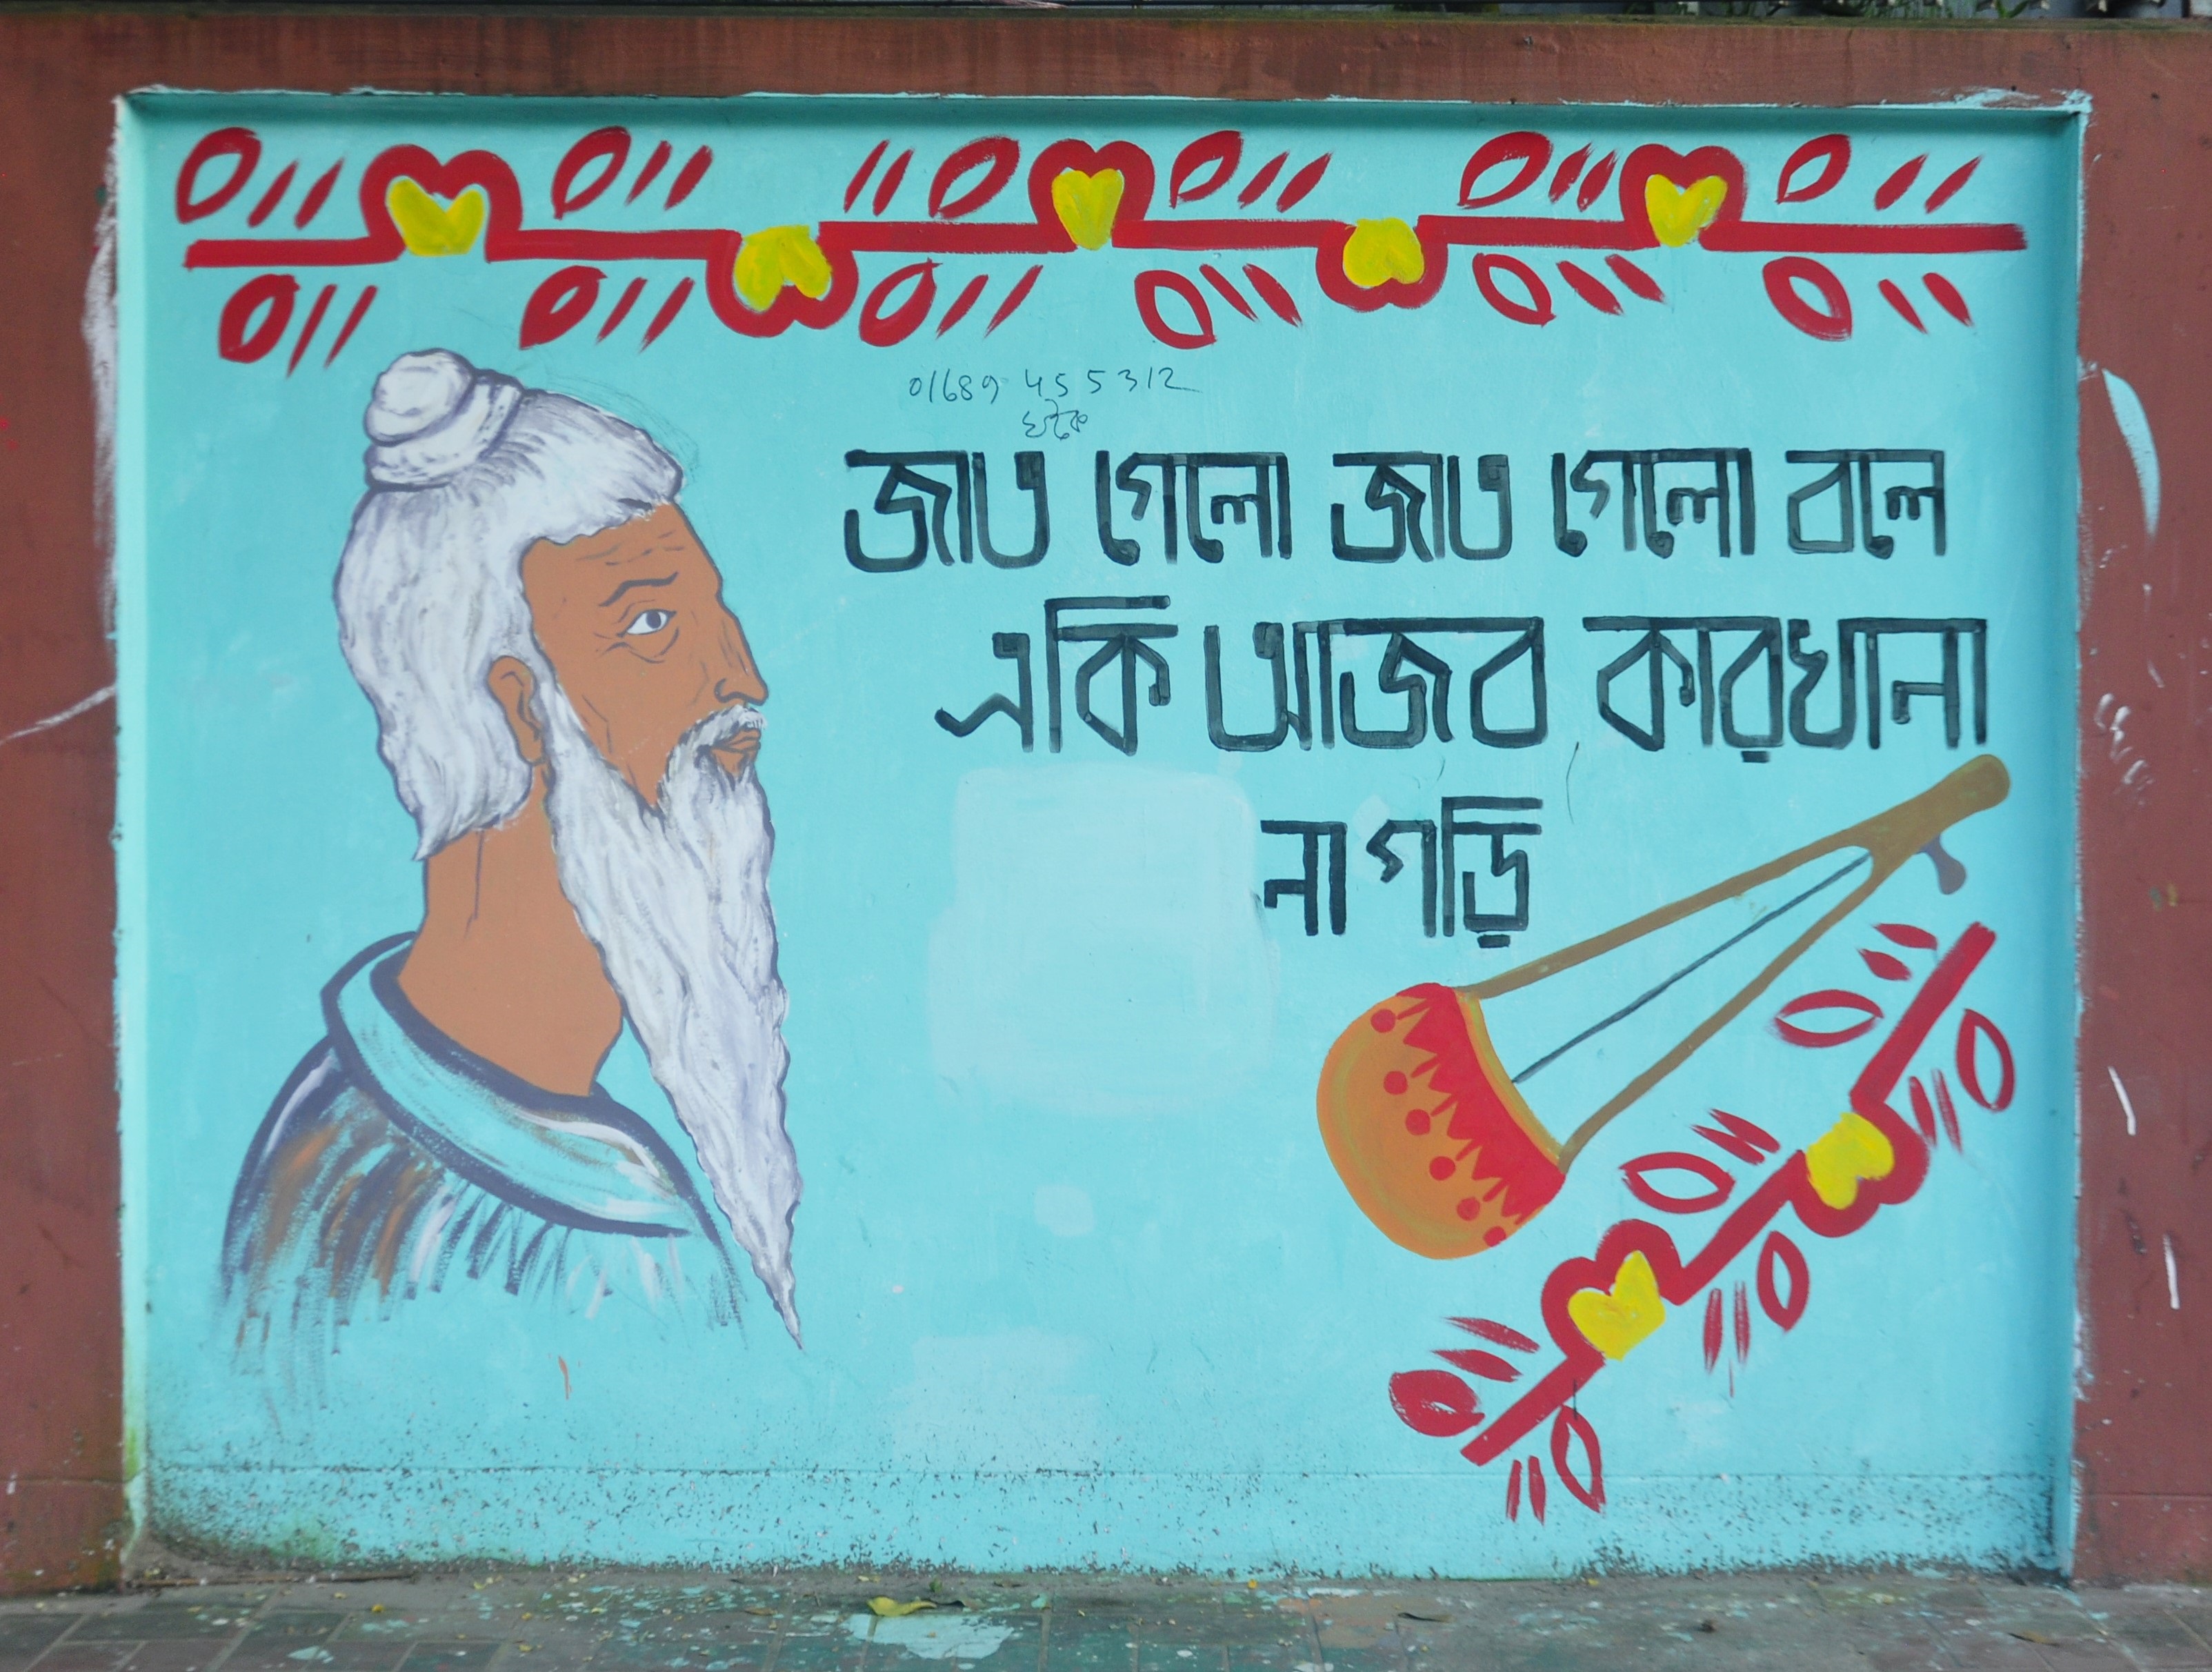 01689 455312
ঘটক
জাত গেলো জাত গেলো বলে
একি আজব কারখানা
না গড়ি